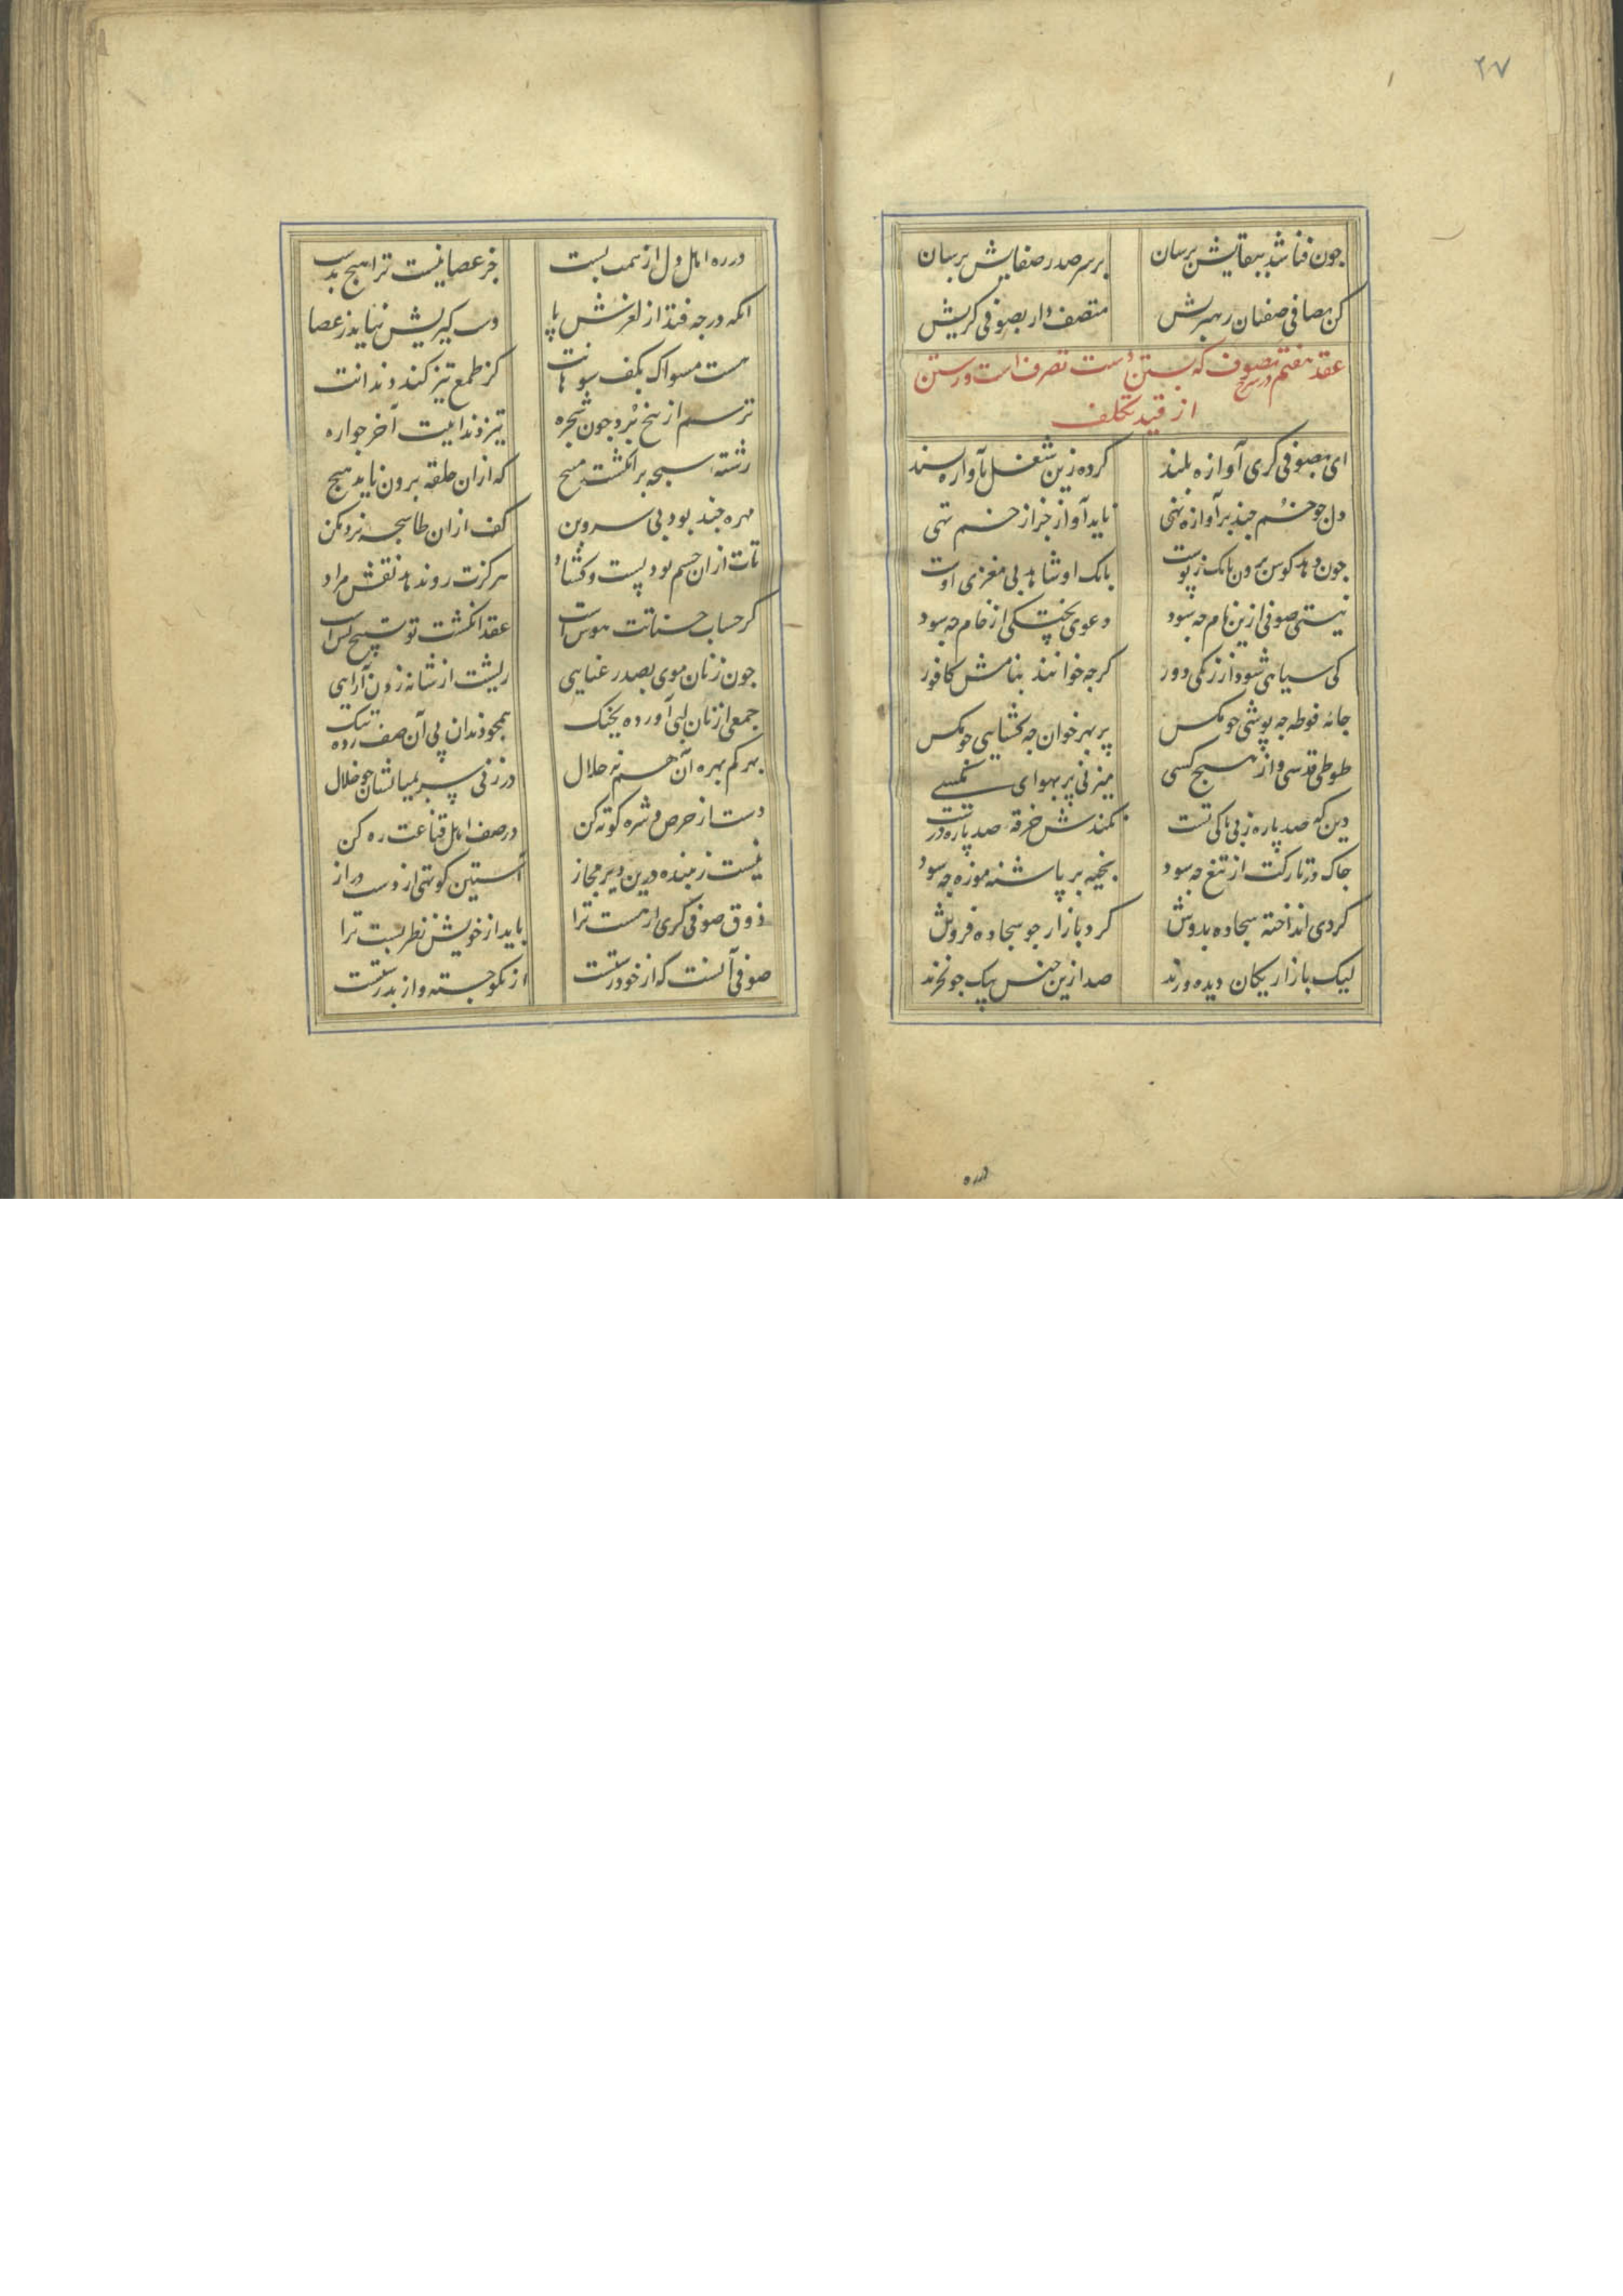 ۲۷
چون فنا شد ببقایش برسان بر سر صدر صفایش برسان
کن بصافی صفتان رهبریش متصف دار بصوفی کریش
عقد هفتم در شرح تصوف که بستن دست تصرف است و رستن
از قید تکلف
ای بصوفی کری آوازه بلند کرده زین شغل بآوازه بسند
دل چو خم چند بر آوازه نهی ناید آواز جز از خم تهی
چون دهد کوس برون بانک ز پوست بانک او شاهد بی مغزی اوست
نیستی صوفی ازین نام چه سود دعوی پختکی از خام چه سود
کی سیاهی شود از زنکی دور کرچه خوانند بنامش کافور
جامه فوطه چه پوشی چو مکس پر بهر خوان چه کشایی چو مکس
طوطی قدسی و از هیچ کسی میزنی پر بهوای مکسی
دین که صد پاره ز بی باکی تست نکند خرقه صد پاره درست
چاک در تارکت از تیغ چه سود بخیه بر پاشنه موزه چه سود
کردی انداخته سجاده بدوش کرد بازار چو سجاده فروش
لیک بازاریکان دیده ورند صد ازین جنس بیک جو نخرند
در ره
در ره اهل دل از همت پست جز عصا نیست ترا هیچ بدست
انکه در چه فتد از لغزش پا دست کیریش نیاید ز عصا
هست مسواک بکف سوهانت کز طمع تیز کند دندانت
ترسم از بیخ برد چون شجره تیز دندانیت آخر چو اره
رشته سبحه بر انکشت مپیچ که ازان حلقه برون ناید هیچ
مهره چند بود بی سر و بن کف ازان طاسچه نرد مکن
تات ازان چشم بود بست و کشاد هرکزت رو ندهد نقش مراد
کر حساب حسناتت هوس است عقد انکشت تو تسبیح بس است
چون زنان موی بصد رعنایی ریشت از شانه زدن آرایی
جمعی از زنان لبی آورده بچنک همچو دندان پی آن صف زده تنک
بهر کم بهره آن هم نه حلال در زنی سر بمیانشان چو خلال
دست از حرص و شره کوته کن در صف اهل قناعت ره کن
نیست زیبنده درین دیر مجاز آستین کوتهی از دست دراز
ذوق صوفی کری ار هست ترا باید از خویش نظر بست ترا
صوفی آنست که از خود رستست از نکو جسته و از بد رستست